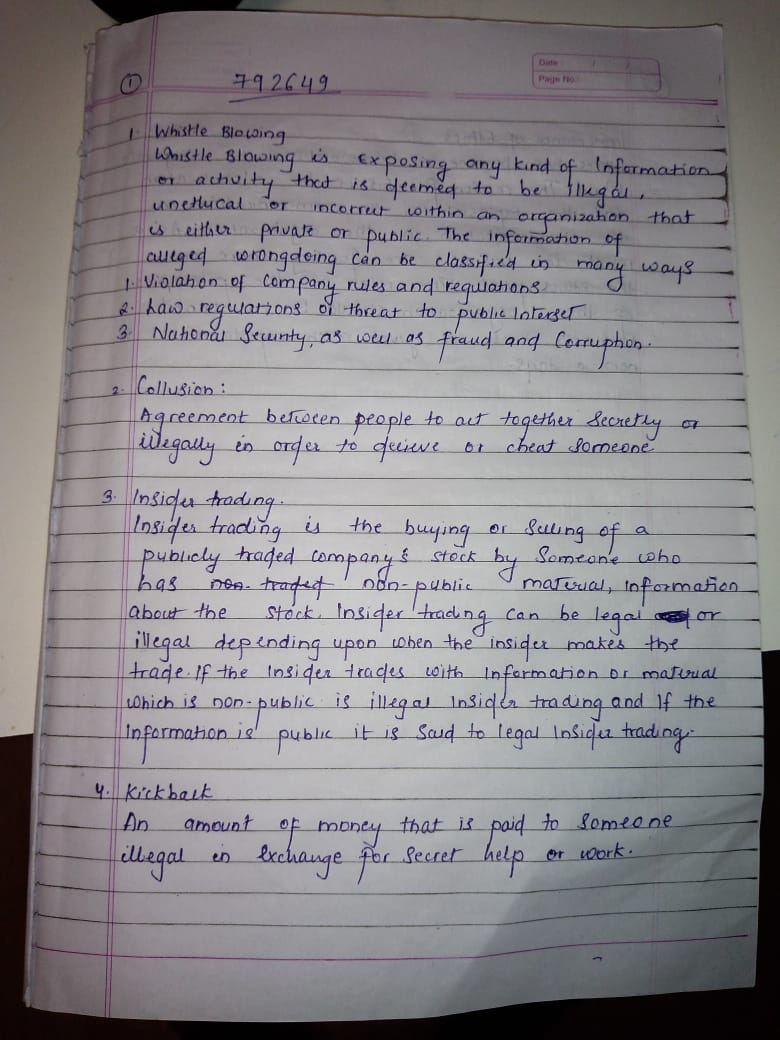 ① 792649
Date / /
Page No.
1. Whistle Blowing
Whistle Blowing is Exposing any kind of Information
or activity that is deemed to be illegal,
unethical or incorrect within an organization that
is either private or public. The information of
alleged wrongdoing can be classified in many ways
1. Violation of Company rules and regulations
2. Law regulations or threat to public Interset
3. National Security, as well as fraud and Corruption.
2. Collusion :
Agreement between people to act together Secretly or
illegally in order to decieve or cheat Someone
3. Insider trading.
Insider trading is the buying or Selling of a
publicly traded company's stock by Someone who
has non-traded non-public material, Information
about the stock. Insider trading can be legal or
illegal depending upon when the insider makes the
trade. If the Insider trades with Information or material
which is non-public is illegal Insider trading and If the
Information is public it is Said to legal Insider trading.
4. Kickback
An amount of money that is paid to Someone
illegal in Exchange for Secret help or work.